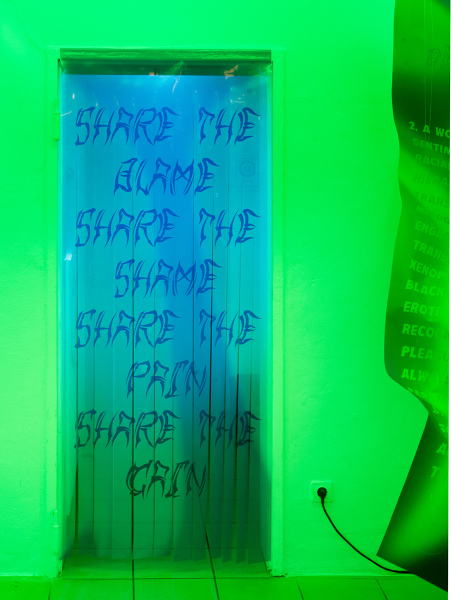 SHARE THE
BLAME
SHARE THE
SHAME
SHARE THE
PAIN
SHARE THE
GAIN
2. A WO
SENTIN
RACIA
TRANS
XENOP
BLACK
EROTI
RECO
PLEA
ALW
A
T